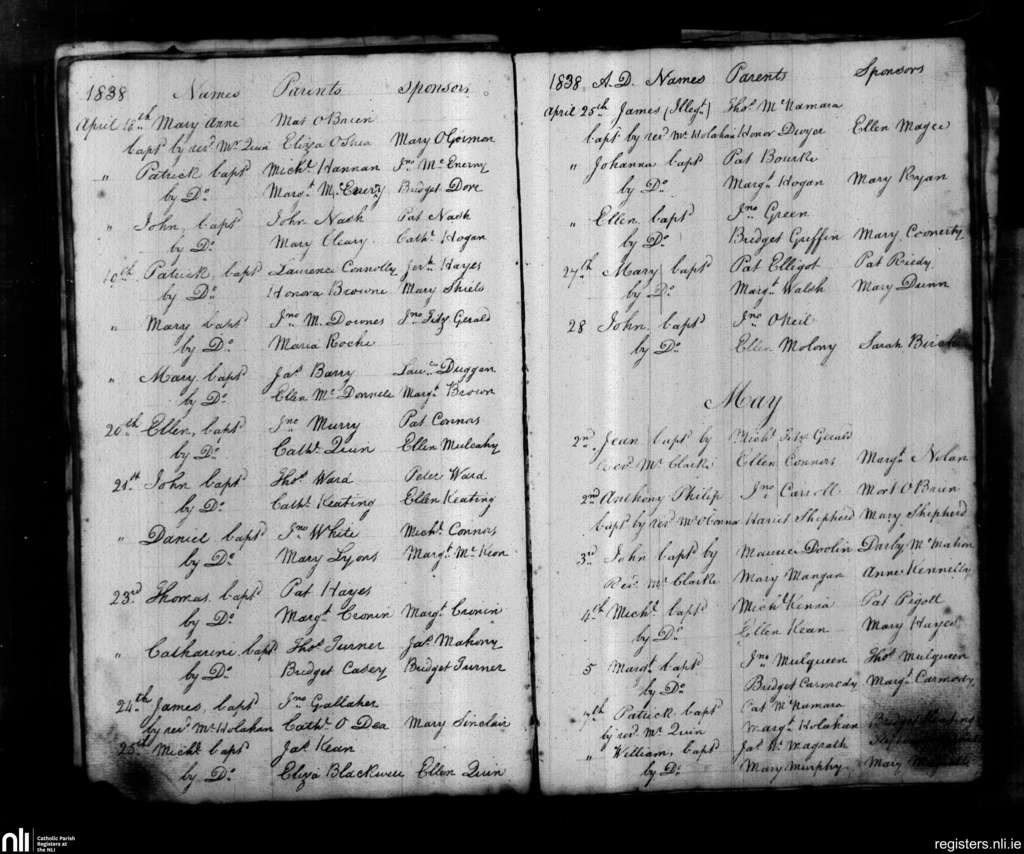 1838 Names Parents Sponsors
April 18th Mary Anne Mat OBrien
bapt by revd Mr Quin Eliza OShea Mary OGorman
" Patrick bapd Michl Hannan Jno McEnerry
by Do Margt McEnery Bridget Dore
" John bapd John Nash Pat Nash
by Do Mary Cleary Cathe Hogan
Patrick bapd Laurence Connolly Hayes
by Do Honora Browne Mary Shiels
" Mary bapd Jno M. Downes Jno Fitz Gerald
by Do Maria Roche
" Mary bapd Jas Barry Lawce Duggan
by Do Ellen McDonnell Margt Brown
20th Ellen bapd Jno Murry Pat Connors
by Do Cathe Quin Ellen Mulcahy
21st John bapd Thos Ward Peter Ward
by Do Cathe Keating Ellen Keating
" Daniel bapd Jno White Michl Connors
by Do Mary Lyons Margt McKeon
23rd Thomas bapd Pat Hayes
by Do Margt Cronin Margt Cronin
" Catharine bapd Thos Turner Jas Mahony
by Do Bridget Casey Bridget Turner
24th James bapd Jno Gallaher
by revd Mr Holahan Cathe O Dea Mary Sinclair
25th Michl bapd Jas Kean
by Do Eliza Blackwell Ellen Quin
1838 A.D. Names Parents Sponsors
April 25th James (Illegt) Thos McNamara
bapt by revd Mr Holahan Honor Dwyer Ellen Magee
" Johanna bapd Pat Bourke
by Do Margt Hogan Mary Ryan
" Ellen bapd Jno Green
by Do Bridget Griffin Mary Coonerty
27th Mary bapd Pat Elligot Pat Riedy
by Do Margt Walsh Mary Dunn
28 John bapd Jno ONeil
by Do Ellen Molony Sarah
May
2nd Jean bapd by Michl Fitz Gerald
Revd Mr Clarke Ellen Connors Margt Nolan
2nd Anthony Philip Jno Carroll Mort OBrien
bapt by revd Mr OConnor Hariet Shepherd Mary Shepherd
3rd John bapd by Maurice Doolin Darby McMahon
Revd Mr Clarke Mary Mangan Anne Kennelly
4th Michl bapd Michl Kenna Pat Pigott
by Do Ellen Kean Mary Hayes
5 Margt bapd Jno Mulqueen Thos Mulqueen
by Do Bridget Carmody Margt Carmody
7th Patrick bapd Pat McNamara
by revd Mr Quin Margt Holahan Bridget
" William bapd Jas W. Magrath
by Do Mary Murphy Mary
nli Catholic Parish
Registers at
the NLI
registers.nli.ie